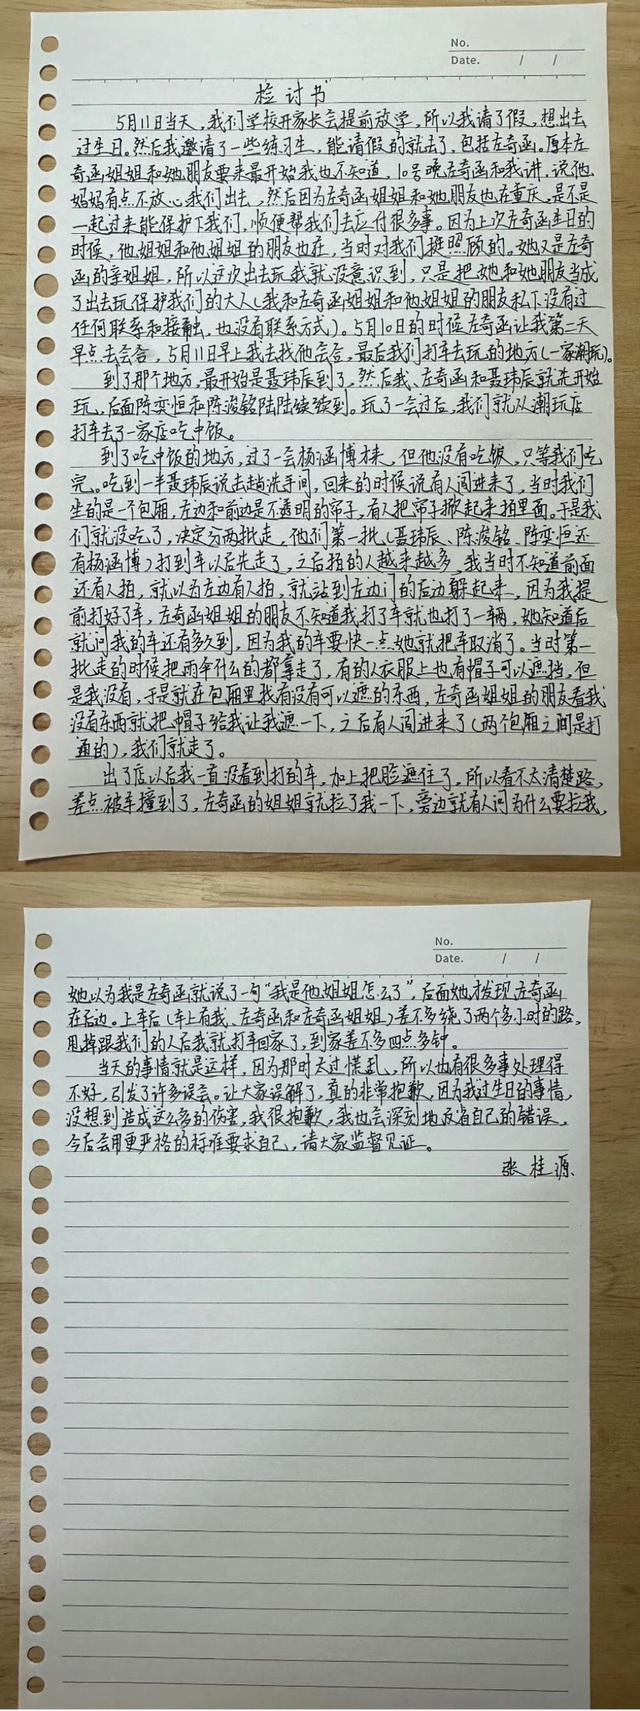 No.
Date. / /
检讨书
5月11日当天，我们学校开家长会提前放学，所以我请了假，想出去
过生日。然后我邀请了一些练习生，能请假的就去了，包括左奇函。原本左
奇函姐姐和她朋友要来最开始我也不知道，10号晚左奇函和我讲，说他
妈妈有点不放心我们出去，然后因为左奇函姐姐和她朋友也在重庆，是不是
一起过来能保护下我们，顺便帮我们去应付很多事。因为上次左奇函生日的
时候，他姐姐和他姐姐的朋友也在，当时对我们挺照顾的。她又是左奇
函的亲姐姐，所以这次出去玩我就没意识到，只是把她和她朋友当成
了出去玩保护我们的大人（我和左奇函姐姐和他姐姐的朋友私下没有过
任何联系和接触，也没有联系方式）。5月10日的时候左奇函让我第二天
早点去会合，5月11日早上我去找他会合，最后我们打车去玩的地方（一家潮玩）。
到了那个地方，最开始是聂玮辰到了，然后我、左奇函和聂玮辰就先开始
玩，后面陈奕恒和陈浚铭陆陆续续到。玩了一会过后，我们就从潮玩店
打车去了一家店吃中饭。
到了吃中饭的地方，过了一会杨涵博才来，但他没有吃饭，只等我们吃
完。吃到一半聂玮辰说去趟洗手间，回来的时候说有人闯进来了，当时我们
坐的是一个包厢，左边和前边是不透明的帘子，有人把帘子掀起来拍里面。于是我
们就没吃了，决定分两批走，他们第一批（聂玮辰、陈浚铭、陈奕恒还
有杨涵博）打到车以后先走了，之后拍的人越来越多，我当时不知道前面
还有人拍，就以为左边有人拍，就站到左边门的后边躲起来，因为我提
前打好了车，左奇函姐姐的朋友不知道我打了车就也打了一辆，她知道后
就问我的车还有多久到，因为我的车要快一点她就把车取消了。当时第一
批走的时候把雨伞什么的都拿走了，有的人衣服上也有帽子可以遮挡，但
是我没有，于是就在包厢里找有没有可以遮的东西，左奇函姐姐的朋友看我
没有东西就把帽子给我让我遮一下，之后有人闯进来了（两个包厢之间是打
通的），我们就走了。
出了店以后我一直没看到打的车，加上把脸遮住了，所以看不太清楚路，
差点被车撞到了，左奇函的姐姐就拉了我一下，旁边就有人问为什么要拉我，
No.
Date. / /
她以为我是左奇函就说了一句“我是他姐姐怎么了”，后面她才发现左奇函
在后边。上车后（车上有我、左奇函和左奇函姐姐）差不多绕了两个多小时的路，
甩掉跟我们的人后我就打车回家了，到家差不多四点多钟。
当天的事情就是这样，因为那时太过慌乱，所以也有很多事处理得
不好，引发了许多误会。让大家误解了，真的非常抱歉，因为我过生日的事情，
没想到造成这么多的伤害，我很抱歉，我也会深刻地反省自己的错误，
今后会用更严格的标准要求自己，请大家监督见证。
张桂源